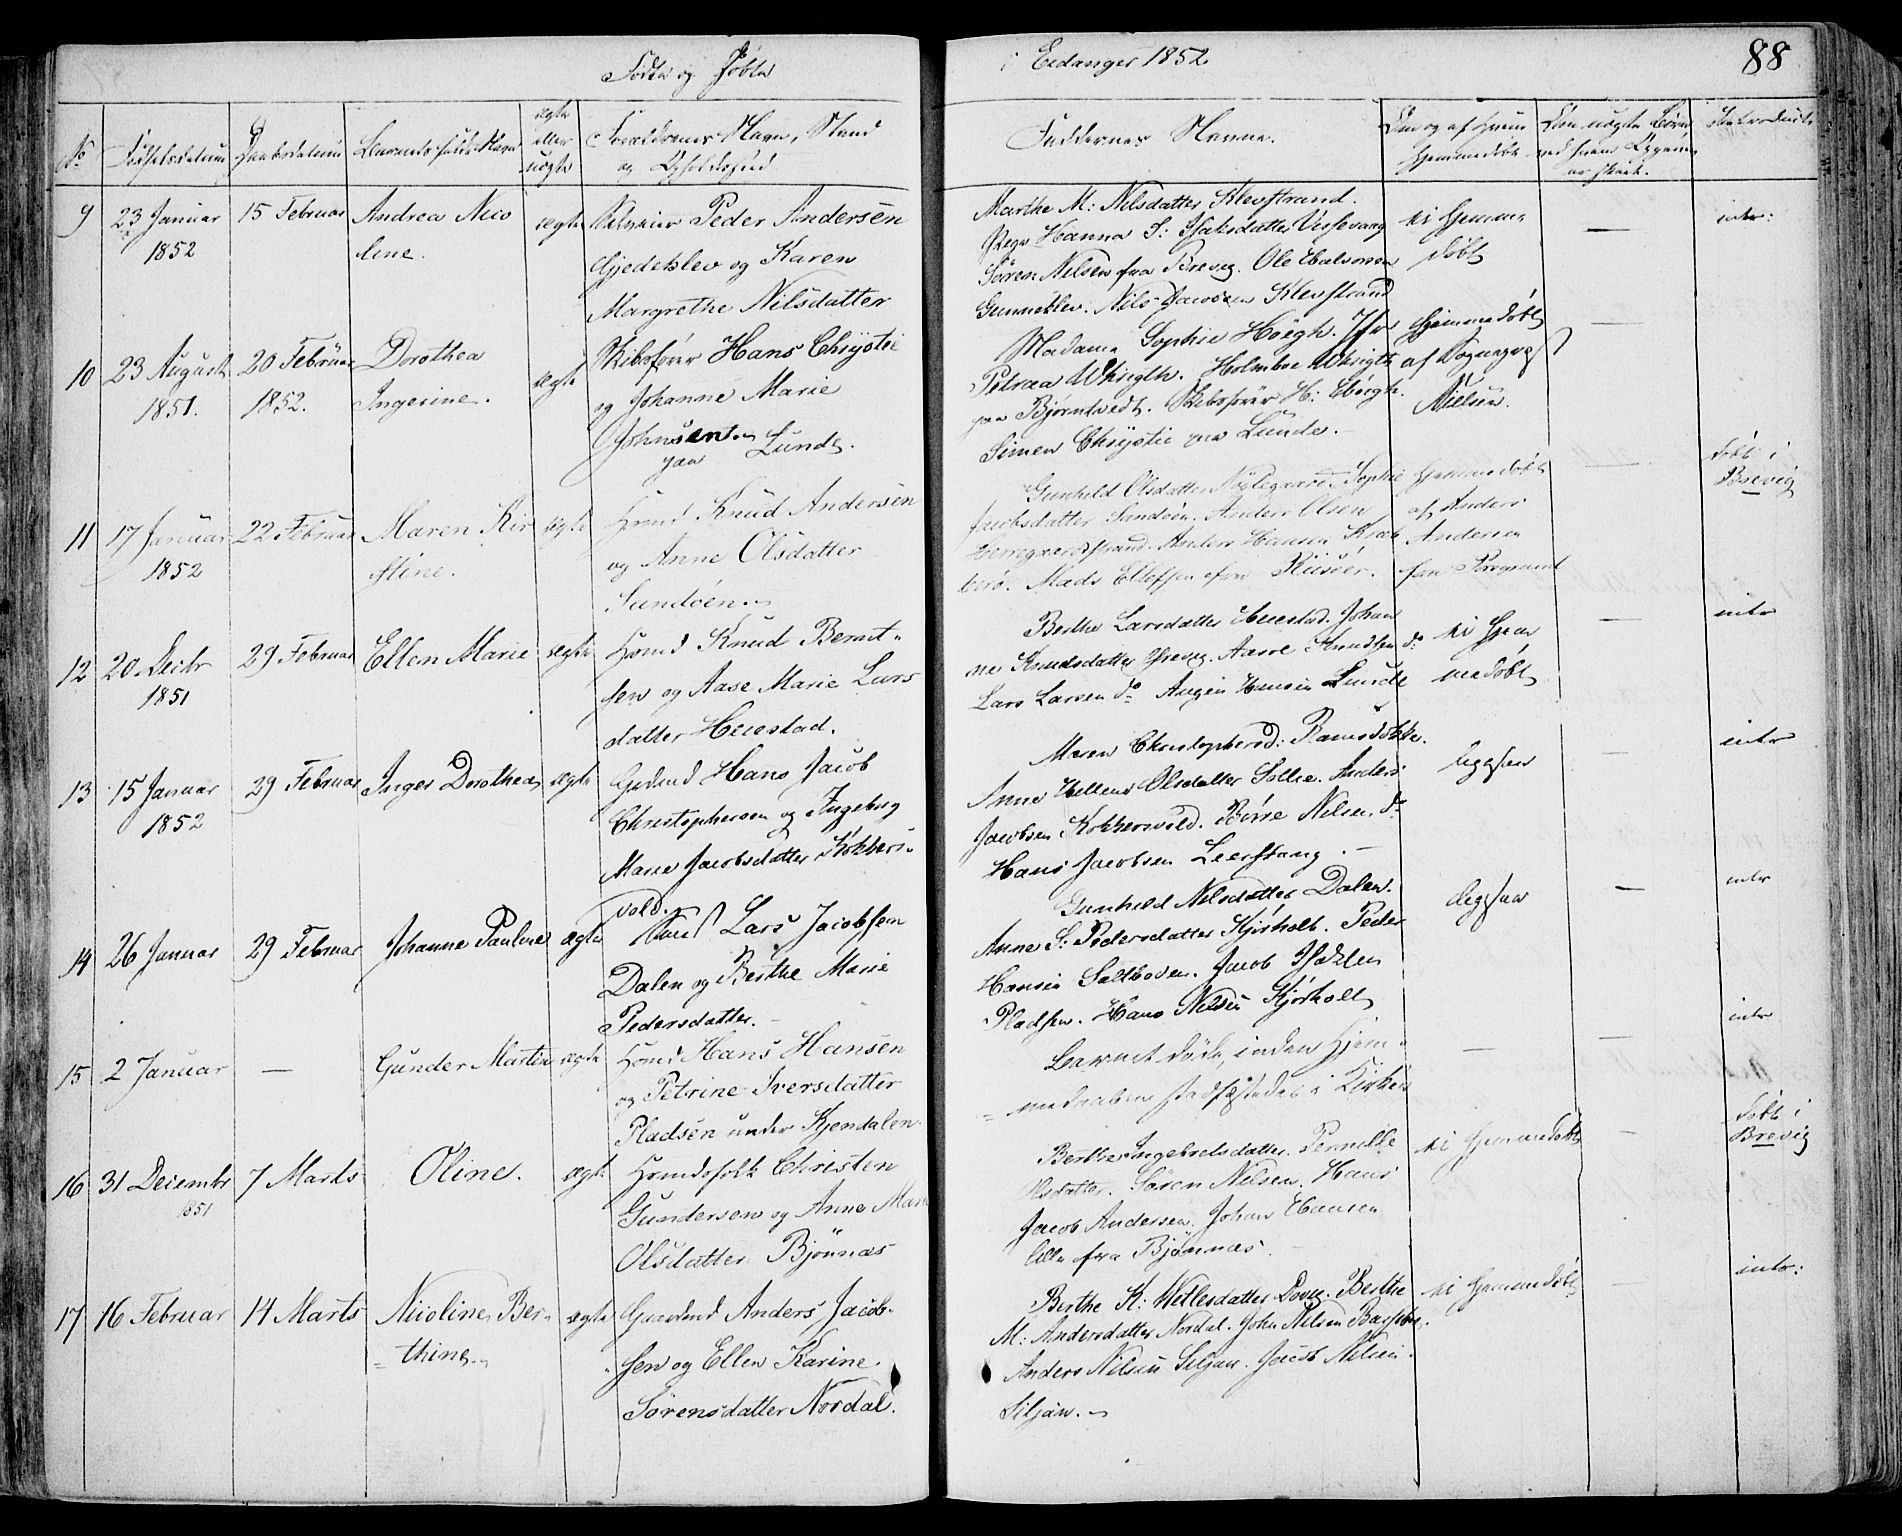 Födte og Döbte
i Eidanger 1852
88
No
Fødselsdatum
Daabsdatum
Barnets fulde Navn
ægte
eller
uægte
Forældrenes Navn, Stand
og Opholdssted
Faddernes Navne.
Om og af hvem
hjemmedøbt
Introduceret
9
23 Januar
1852
15 Februar
Andrea Nico
line.
ægte
Peder Andersen
Gjedeklev og Karen
Margrethe Nilsdatter
Marthe M: Nilsdatter Klevstrand.
Pige Hanna S: Isaksdatter
Sören Nilsen fra Brevig. Ole Halvorsen
Gunneklev. Nils Jacobsen Klevstrand
ei hjemme
døbt
—
intr:
10
23 August
1851.
20 Februar
1852.
Dorothea
Ingerine.
ægte
Skibsfører Hans Chrystie
og Johanne Marie
Johnsen
paa Lunde.
Madame Sophie Höegh.
Petrea Whrigth. Holmboe Whrigth
paa Bjørntvedt. Skibsfører H: Höegh.
Simen Chrystie paa Lunde.
hjemmedøbt
af Sognepræst
Nielsen.
—
11
17 Januar
1852
22 Februar
Maren Kir
stine.
ægte
Hmd Knud Andersen
og Anne Olsdatter
Sundöen.
Gunhild Olsdatter Sophie
Jacobsdatter Sundöen. Anders Olsen
Herregaardsstrand. Anders Hansen Krab
berö. Mads Ellefsen fra
hjemmedøbt
af Anders
Andersen
fra Porsgrund
—
døbt i
Brevig
12
20 Decbr
1851
29 Februar
Ellen Marie
ægte
Hmd Knud Bernt-
sen og Aase Marie Lars
datter Heiestad.
Berthe Larsdatter Heiestad. Johan
ne Knudsdatter Knudsen do
Lars Larsen do Hansen Lunde
ei hjem
medøbt
—
intr
13
15 Januar
1852
29 Februar
Inger Dorothea
ægte
Hans Jacob
Christophersen og Ingeborg
Marie Jacobsdatter Kokkers-
vold.
Maren Christophersd:
Anne Hellene Olsdatter Sollie. Anders
Jacobsen Kokkersvold. Börre Nilsen do
Hans Jacobsen Leerstang.
ligesaa
—
intr
14
26 Januar
29 Februar
Johanne Pauline
ægte
Lars Jacobsen
Dalen og Berthe Marie
Pedersdatter.
Gunhild Nilsdatter Dalen.
Anne S: Pedersdatter Kjörholt. Peder
Hansen Saltboden. Jacob
Pladsen. Hans Nilsen Kjörholt
ligesaa
—
intr
15
2 Januar
—
Gunder Martin
ægte
Hmd Hans Hansen
og Petrine Iversdatter
Pladsen under Kjendalen.
Barnet døde, inden Hjem-
medaaben stadfæstedes i Kirken
—
—
intr
16
31 Decembr
1851
7 Marts
Oline.
ægte
Hmdsfolk Christen
Gundersen og Anne Marie
Olsdatter Bjönnæs
Berthe Ingebretsdatter. Pernille
Olsdatter. Sören Nilsen. Hans
Jacob Andersen. Johan Hansen
alle fra Bjönnæs.
ei hjemmedøbt
—
døbt i
Brevig
17
16 Februar
14 Marts
Nicoline Ber-
thine.
ægte
Gaardmd Anders Jacob-
sen og Ellen Karine
Sörensdatter Nordal.
Berthe K: Berthe
M: Andersdatter Nordal. John Nilsen
Anders Nilsen Siljan. Jacob Nilsen
Siljan.
ei hjemmedøbt
—
intr: